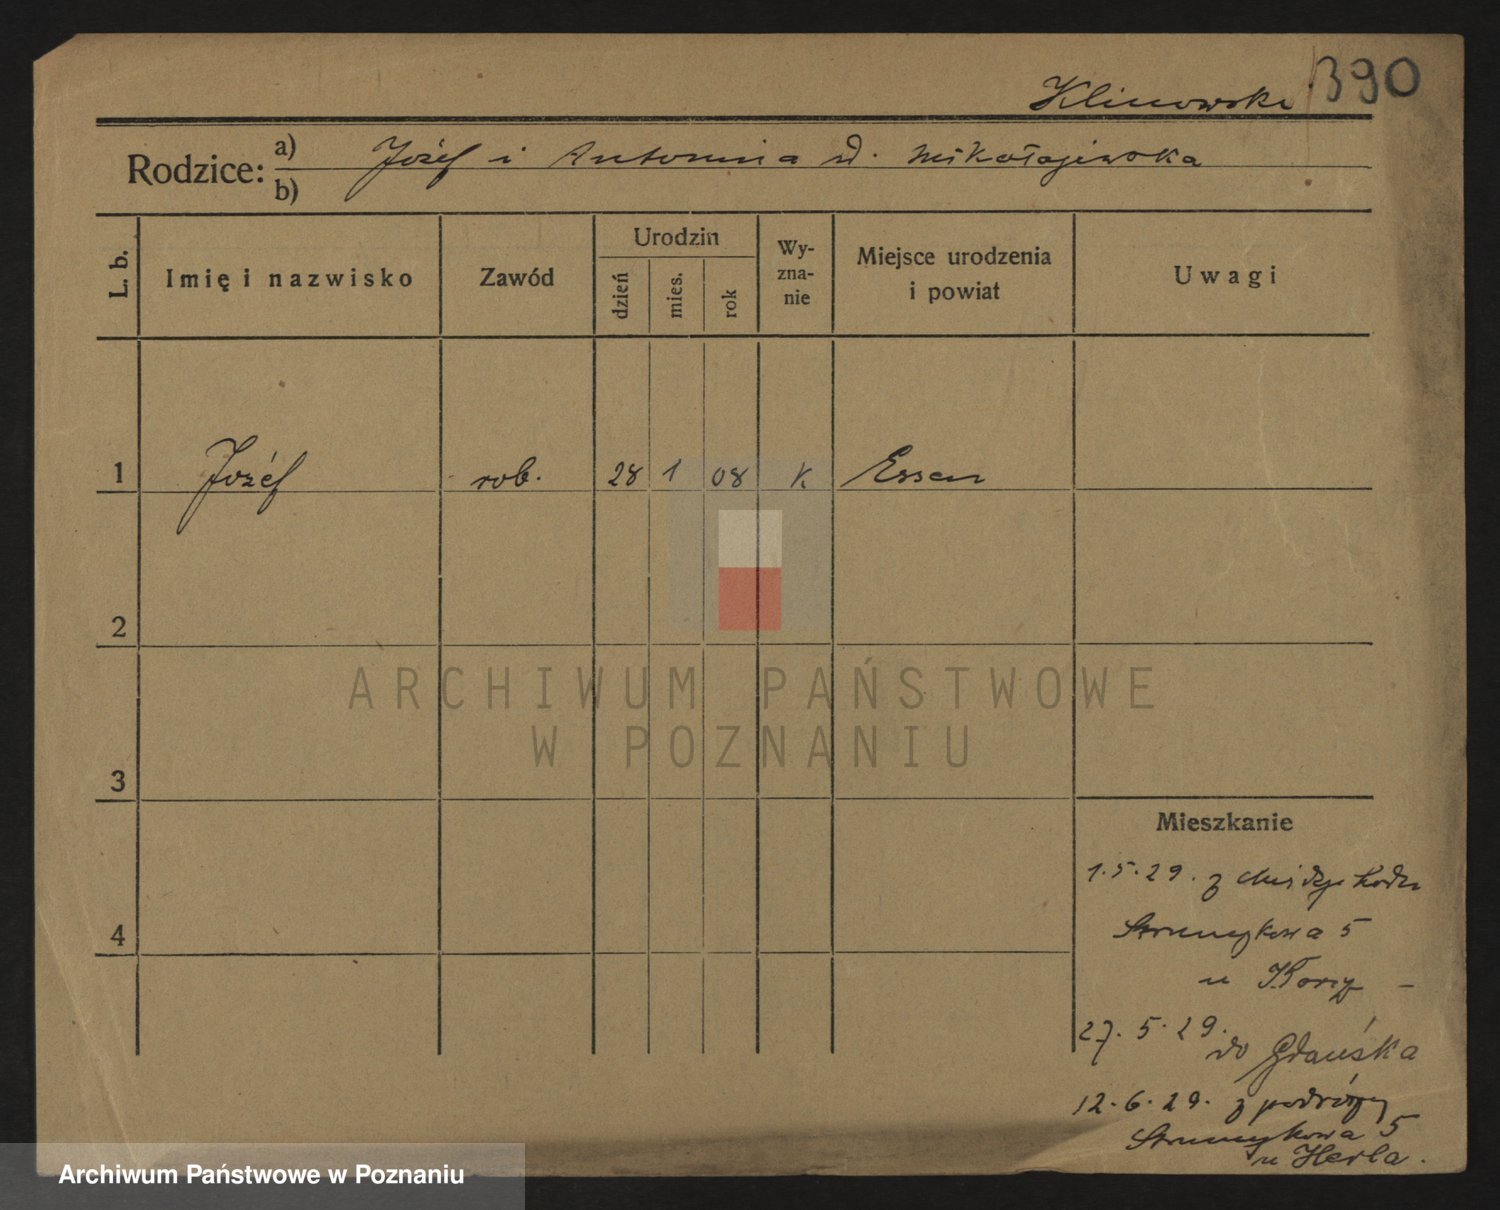 Klinowski 390
Rodzice: a) Józef i Antonina d. Mikołajewska
b)
L. b. Imię i nazwisko Zawód Urodzin dzień mies. rok Wy-zna-nie Miejsce urodzenia i powiat Uwagi
1 Józef rob. 28 1 08 K Essen
2
3
4
Mieszkanie
1.5.29. z
Strumykowa 5
u
27. 5. 29.
do Gdańska
12. 6. 29. z podróży
Strumykowa 5
u Herla.
ARCHIWUM PAŃSTWOWE
W POZNANIU
Archiwum Państwowe w Poznaniu